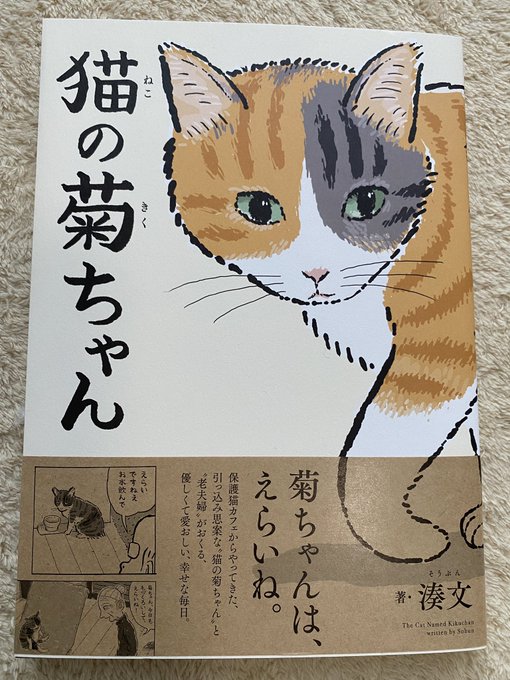 猫の菊ちゃん
ねこ
きく
菊ちゃんは、
えらいね。
保護猫カフェからやってきた、
引っ込み思案な“猫の菊ちゃん”と
“老夫婦”がおくる、
優しくて愛おしい、幸せな毎日。
えらい
ですねえ
お水飲んで
著・湊文
そうぶん
The Cat Named Kikuchan
written by Sobun